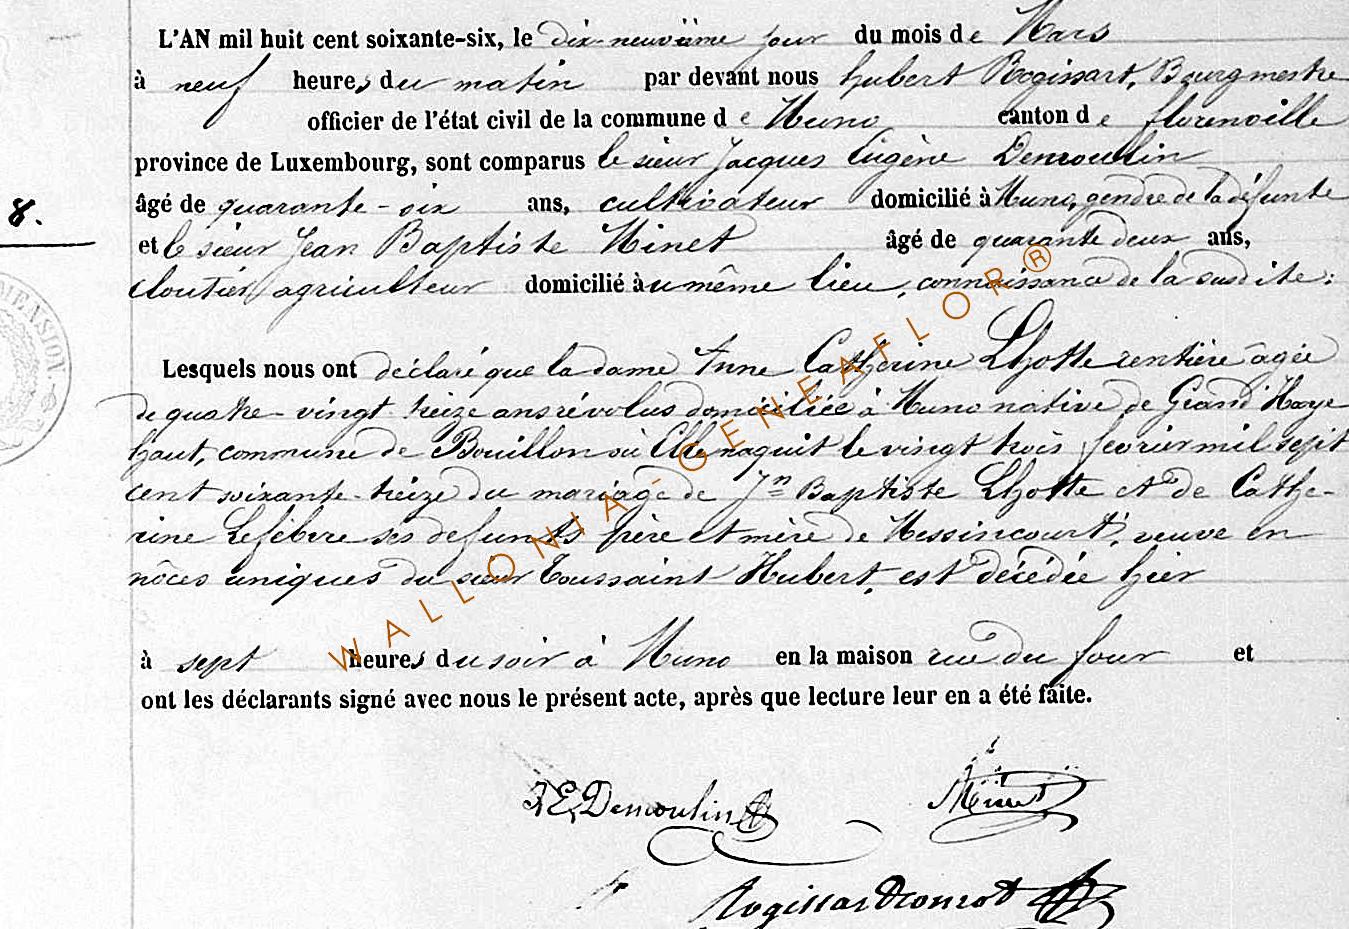 L'AN mil huit cent soixante-six, le dix-neuvième jour du mois de Mars
à neuf heures du matin par devant nous hubert Rogissart, Bourgmestre
officier de l'état civil de la commune de Muno canton de florenville
province de Luxembourg, sont comparus le sieur Jacques Eugène Demoulin
8.
âgé de quarante-six ans, cultivateur domicilié à Muno, gendre de la défunte
et le sieur Jean Baptiste Minet âgé de quarante deux ans,
cloutier, agriculteur domicilié au même lieu, connaissance de la susdite:
MENSION
Lesquels nous ont déclaré que la dame Anne Catherine Lhotte rentière âgée
de quatre-vingt treize ans révolus domiciliée à Muno native de Grand Haye
haut, commune de Bouillon où Elle naquit le vingt trois fevrier mil sept
cent soixante-treize du mariage de Jn Baptiste Lhotte et de Cathe-
rine Lefébvre ses defunts père et mère de Messincourt, veuve en
nôces uniques du sieur Toussaint Hubert, est décédée hier
à sept heures du soir à Muno en la maison rue du four et
ont les déclarants signé avec nous le présent acte, après que lecture leur en a été faite.
WALLONIA-GENEAFLOR®
J E Demoulin Minet
Rogissart